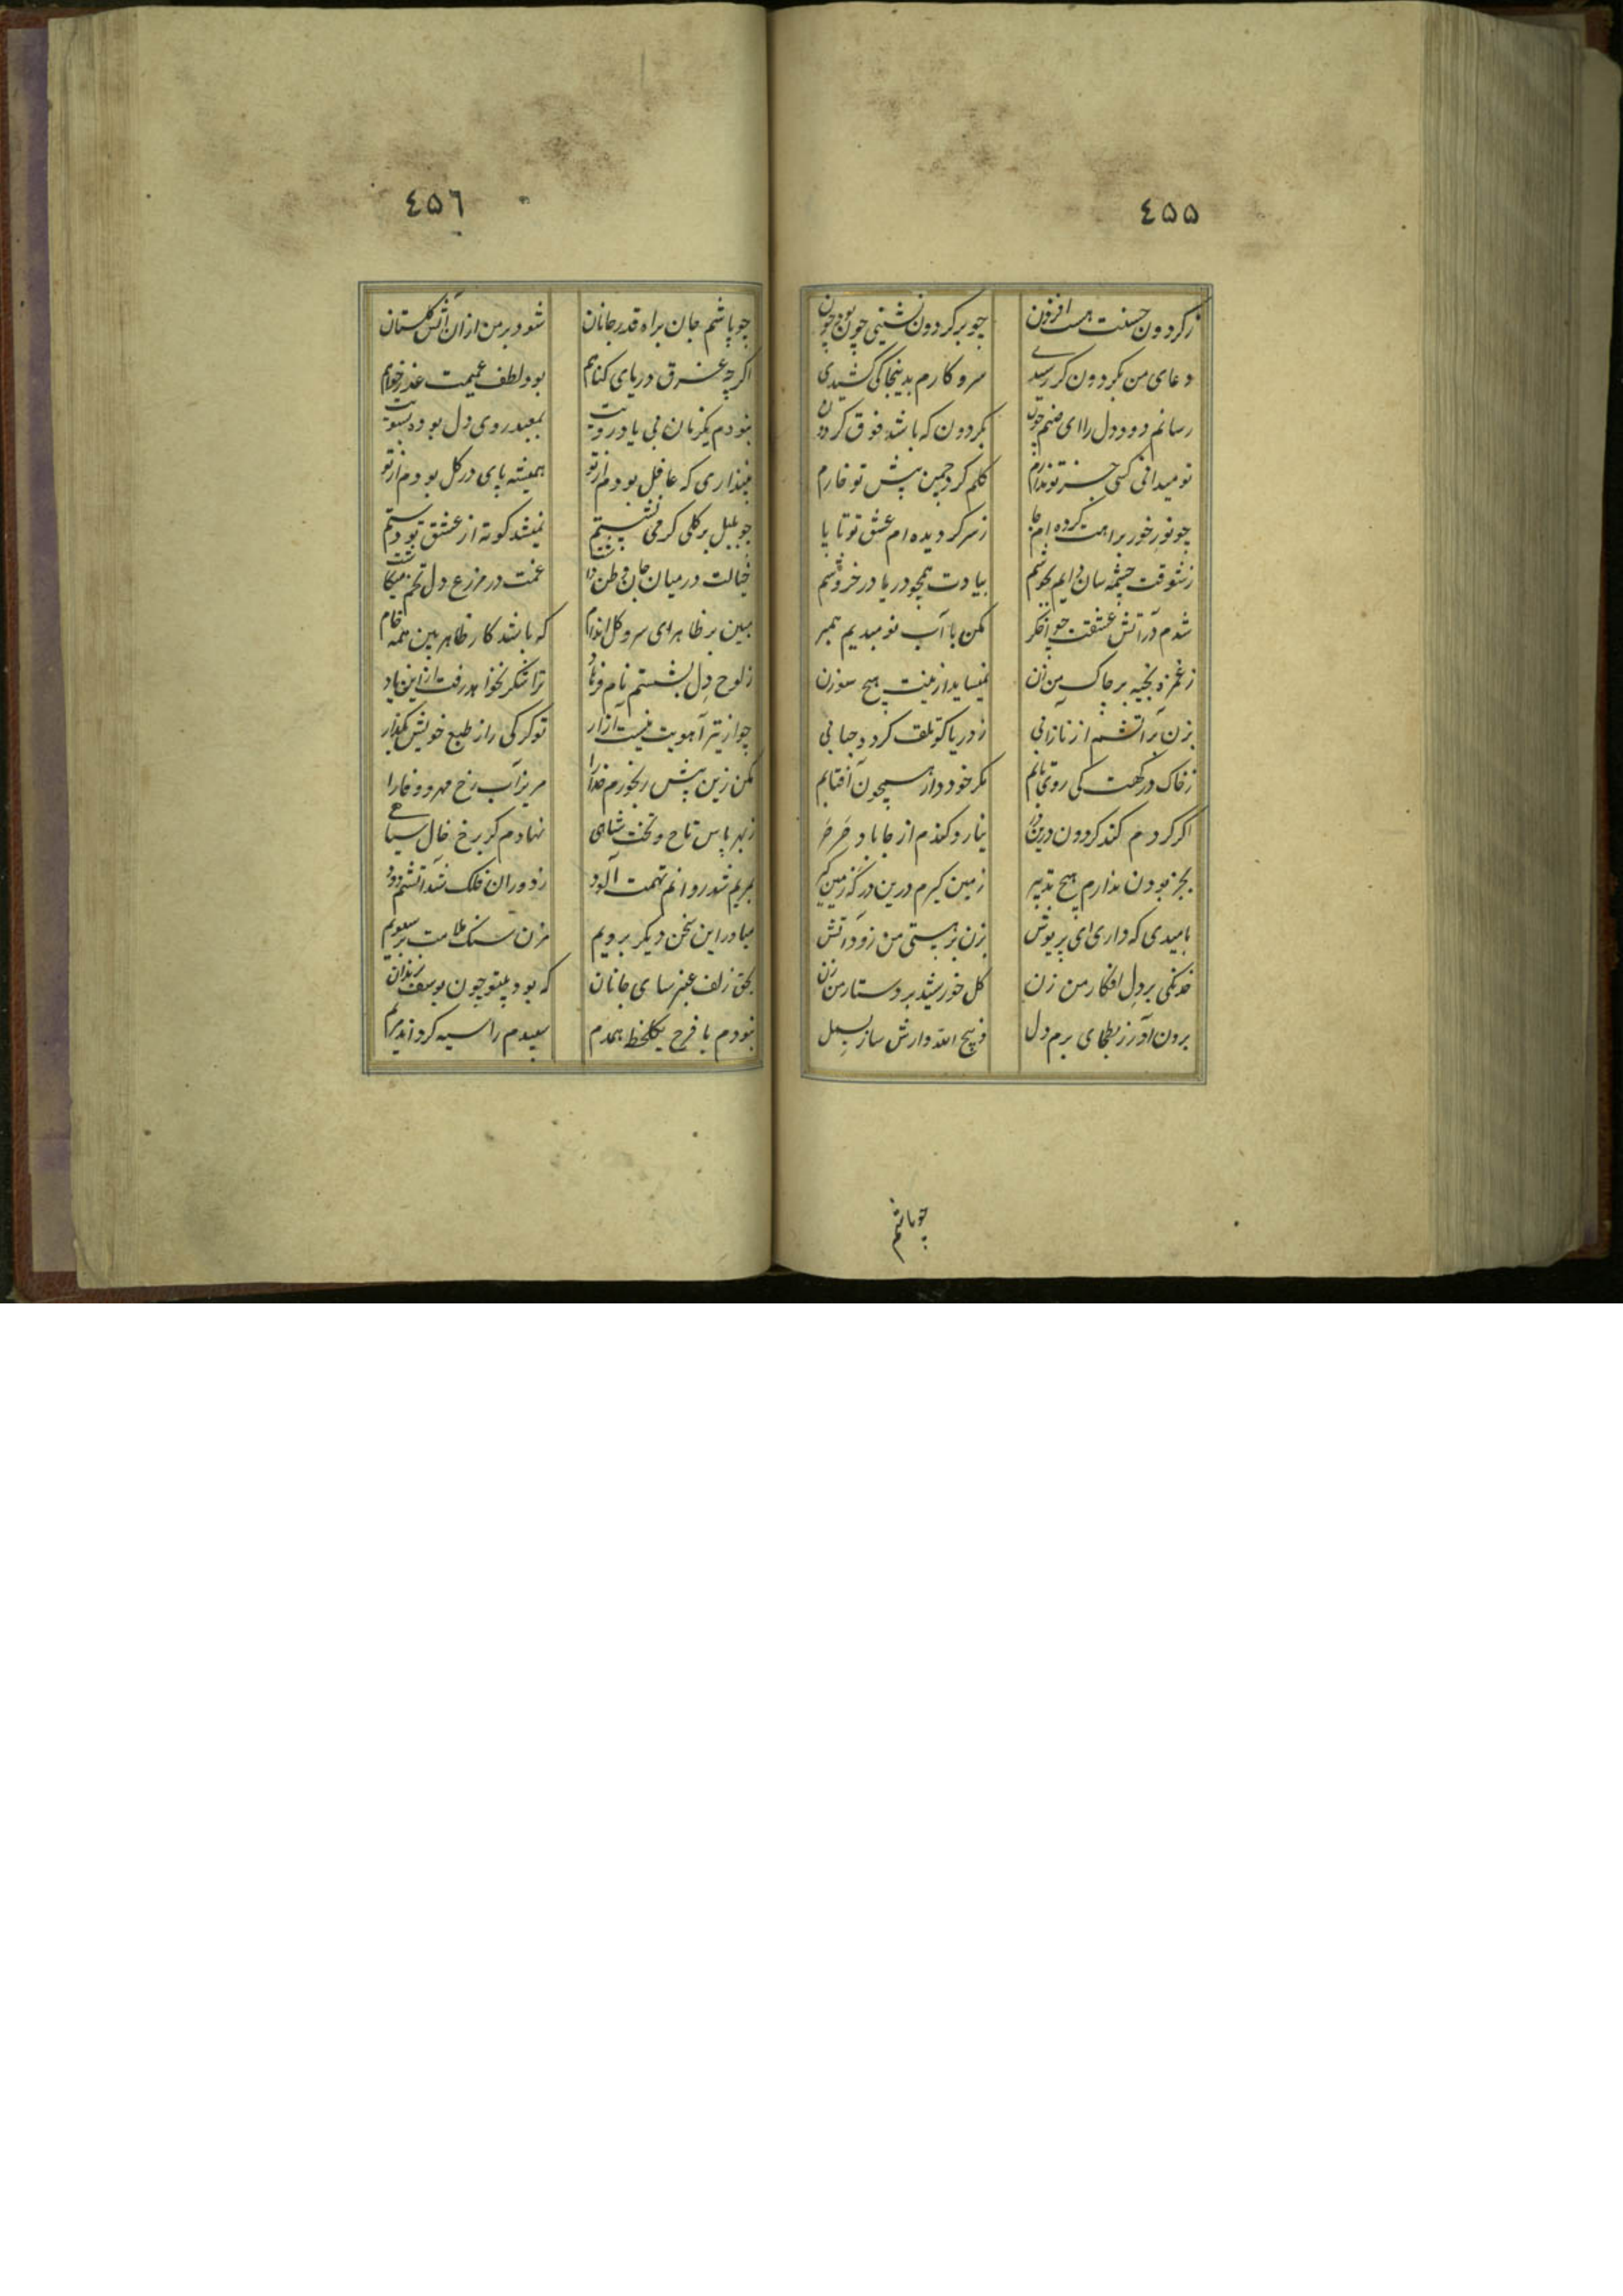 ٤٥٥
زکردون حسنت هست افزون چو برکردون نشینی چون بود چون
دعای من بکردون کر رسیدی سرو کارم بدینجا کی کشیدی
رسانم دود دل را ای صنم چون بکردون که باشد فوق کردون
تو میدانی کسی جز تو ندارم کلم کرد چمن پیش تو خارم
چو نور خور براهت کرده ام جا ز سر کردیده ام عشق تو تا پا
ز شوقت چشمه سان دایم بجوشم بیادت همچو دریا در خروشم
شدم در آتش عشقت چو اخکر مکن با آب نومیدیم همبر
ز غمزه بخیه بر چاک من زن نمیساید ازمنت هیچ سوزن
بزن بر آتشم از ناز آبی ز دریا کو تلف کردد حبابی
ز خاک درکهت کی روی تابم مکر خود دار همچون آفتابم
اکر کردم کند کردون درین در نیارد کندم از جا باد صرصر
بجز بودن ندارم هیچ تدبیر زمین کیرم درین درکه زمین کیر
بامیدی که داری ای پریوش بزن بر هستی من زود آتش
خدنکی بر دل افکار من زن کل خورشید بر دستار من زن
برون آور ز بطحای برم دل ذبیح الله وارش ساز بسمل
چو باشم
٤٥٦
چو باشم جان براه قدر جانان شود بر من ازان آتش کلستان
اکرچه غرق دریای کناهم بود لطف عمیمت عذر خواهم
نبودم یکزمان بی یاد رویت بمعبد روی دل بوده بسویت
نپنداری که غافل بودم از تو همیشه پای در کل بودم از تو
چو بلبل بر کلی کر می نشستم نمیشد کوته از عشق تو دستم
خیالت در میان جان وطن داشت غمت در مزرع دل تخم میکاشت
مبین بر ظاهر ای سرو کل اندام که باشد کار ظاهر بین همه خام
ز لوح دل بشستم نام فرهاد ترا شکر نخواهد رفت از این یاد
چو از تیر آهویت نیست آزار تو کرکی را ز طبع خویش بکذار
مکن زین بیش رنجورم خدا را مریز آب رخ مهر و وفا را
ز بهر پاس تاج و تخت شاهی نهادم کر برخ خال سیاهی
بمریم شد روانم تهمت آلود ز دوران فلک شد آتشم دود
میادر این سخن دیکر برویم مزن سنک ملامت بر سبویم
بحق زلف عنبر سای جانان که بودم بیتو چون یوسف بزندان
نبودم با فرح یکلحظه همدم سپیدم را سیه کرد اند مریم